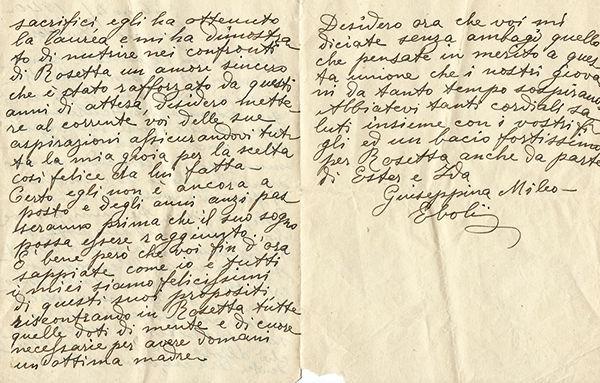 sacrifici egli ha ottenuto
la laurea e mi ha dimostra
to di nutrire nei confronti
di Rosetta un amore sincero
che è stato rafforzato da questi
anni di attesa. Desidero mette
re al corrente voi delle sue
aspirazioni assicurandovi tut
ta la mia gioia per la scelta
così felice da lui fatta-
Certo egli non è ancora a
posto e degli anni anzi pas
seranno prima che il suo sogno
possa essere raggiunto.
E' bene però che voi fin d'ora
sappiate come io e tutti
i miei siamo felicissimi
di questi suoi propositi
riscontrando in Rosetta tutte
quelle doti di mente e di cuore
necessarie per avere domani
un'ottima madre-
Desidero ora che voi mi
diciate senza ambagi quello
che pensate in merito a ques
ta unione che i nostri giova
ni da tanto tempo sospirano
Abbiatevi tanti cordiali sa
luti insieme con i vostri fi
gli ed un bacio fortissimo
per Rosetta anche da parte
di Ester e Ida
Giuseppina Mileo-
Eboli